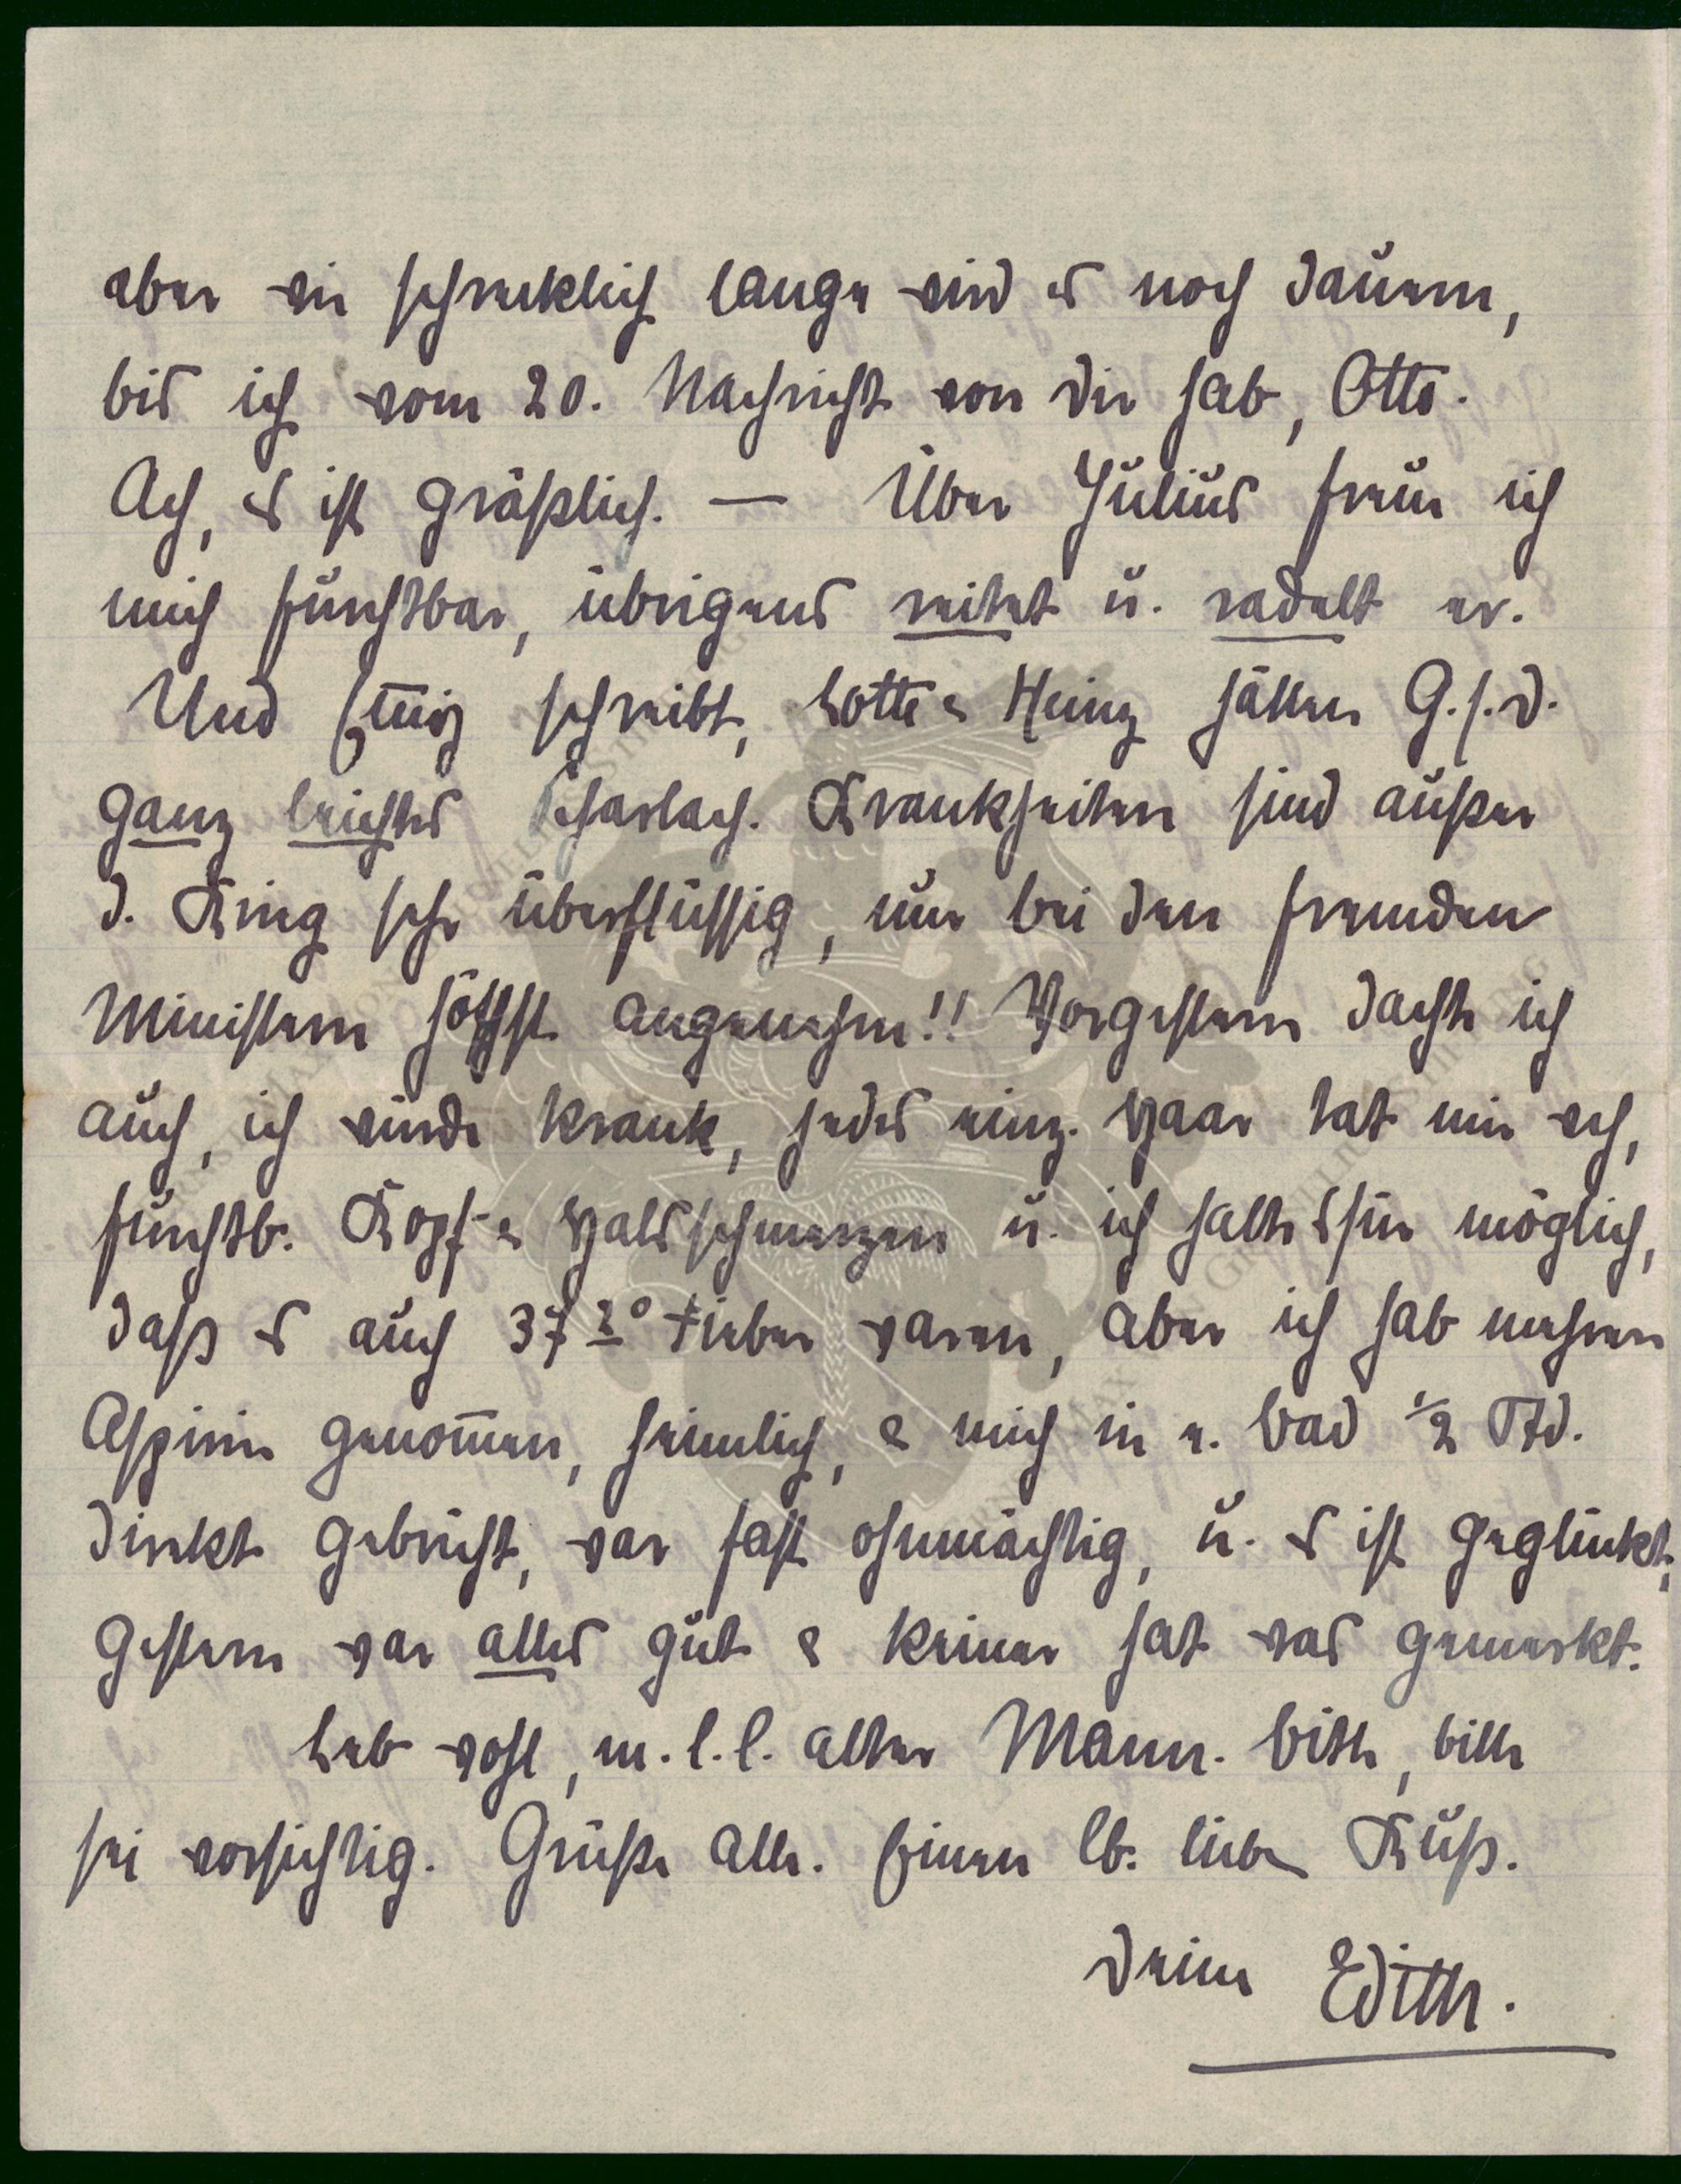 aber wie schrecklich lange wird es noch dauern,
bis ich vom 20. Nachricht von Dir hab, Otto.
Ach, es ist gräßlich. — Über Julius freue ich
mich furchtbar, übrigens reitet u. radelt er.
Und schreibt, Lotte & Heinz hätten G.s.D.
ganz leichtes Scharlach. Krankheiten sind außer
d. Krieg sehr überflüssig, nur bei den fremden
Ministern höchst angenehm!! Vorgestern dachte ich
auch, ich würde krank, jedes einz. Haar tat mir weh,
furchtb. Kopf- & Halsschmerzen u. ich halte es für möglich,
daß es auch 37 2° Fieber waren, aber ich hab mehrere
Aspirin genommen, heimlich, & mich in e. Bad 1/2 Std.
direkt gebrüht, war fast ohnmächtig, u. es ist geglückt;
gestern war alles gut & keiner hat was gemerkt.
Leb wohl, m. l. l. alter Mann. Bitte, bitte
sei vorsichtig. Grüße alle. Einen lb. lieben Kuß.
Deine Edith.
MAX GRUNELIUS-STIFTUNG